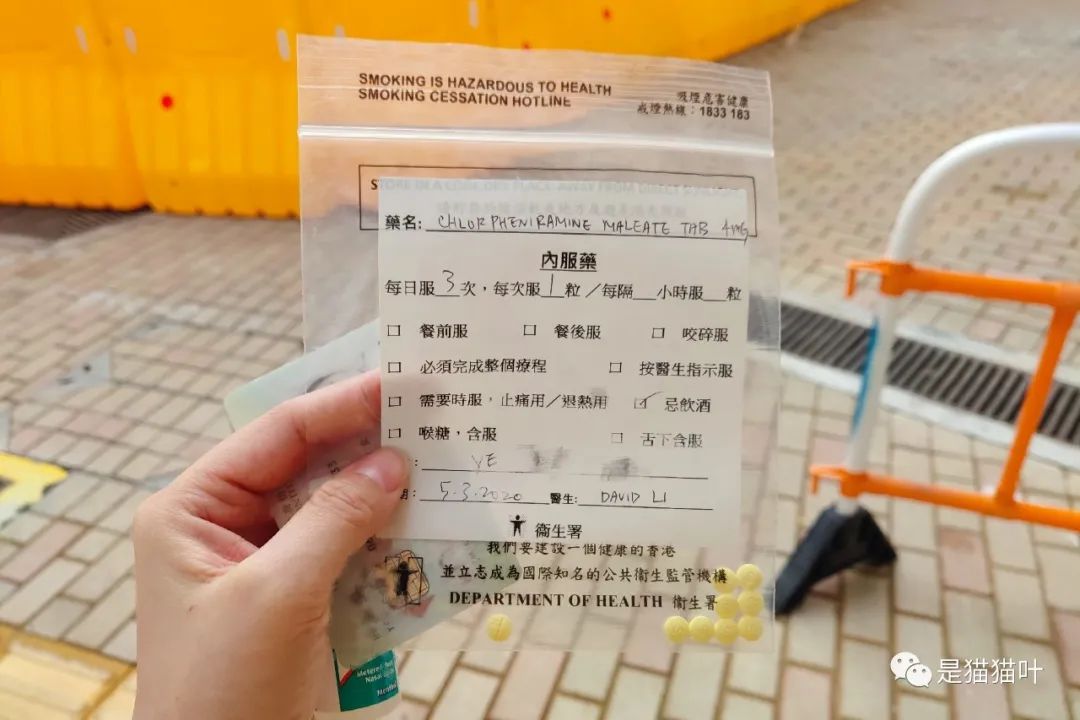 SMOKING IS HAZARDOUS TO HEALTH
SMOKING CESSATION HOTLINE
吸煙危害健康
戒煙熱線：1833 183
STORE IN A COOL DRY PLACE AWAY FROM DIRECT
藥名： CHLORPHENIRAMINE MALEATE TAB 4MG
內服藥
每日服 3 次，每次服 1 粒／每隔__小時服__粒
□ 餐前服 □ 餐後服 □ 咬碎服
□ 必須完成整個療程 □ 按醫生指示服
□ 需要時服，止痛用／退熱用 ☑ 忌飲酒
□ 喉糖，含服 □ 舌下含服
: YE
期: 5.3.2020 醫生: DAVID LI
衞生署
我們要建設一個健康的香港
並立志成為國際知名的公共衞生監管機構
DEPARTMENT OF HEALTH 衞生署
Metered
Nasal
是猫猫叶